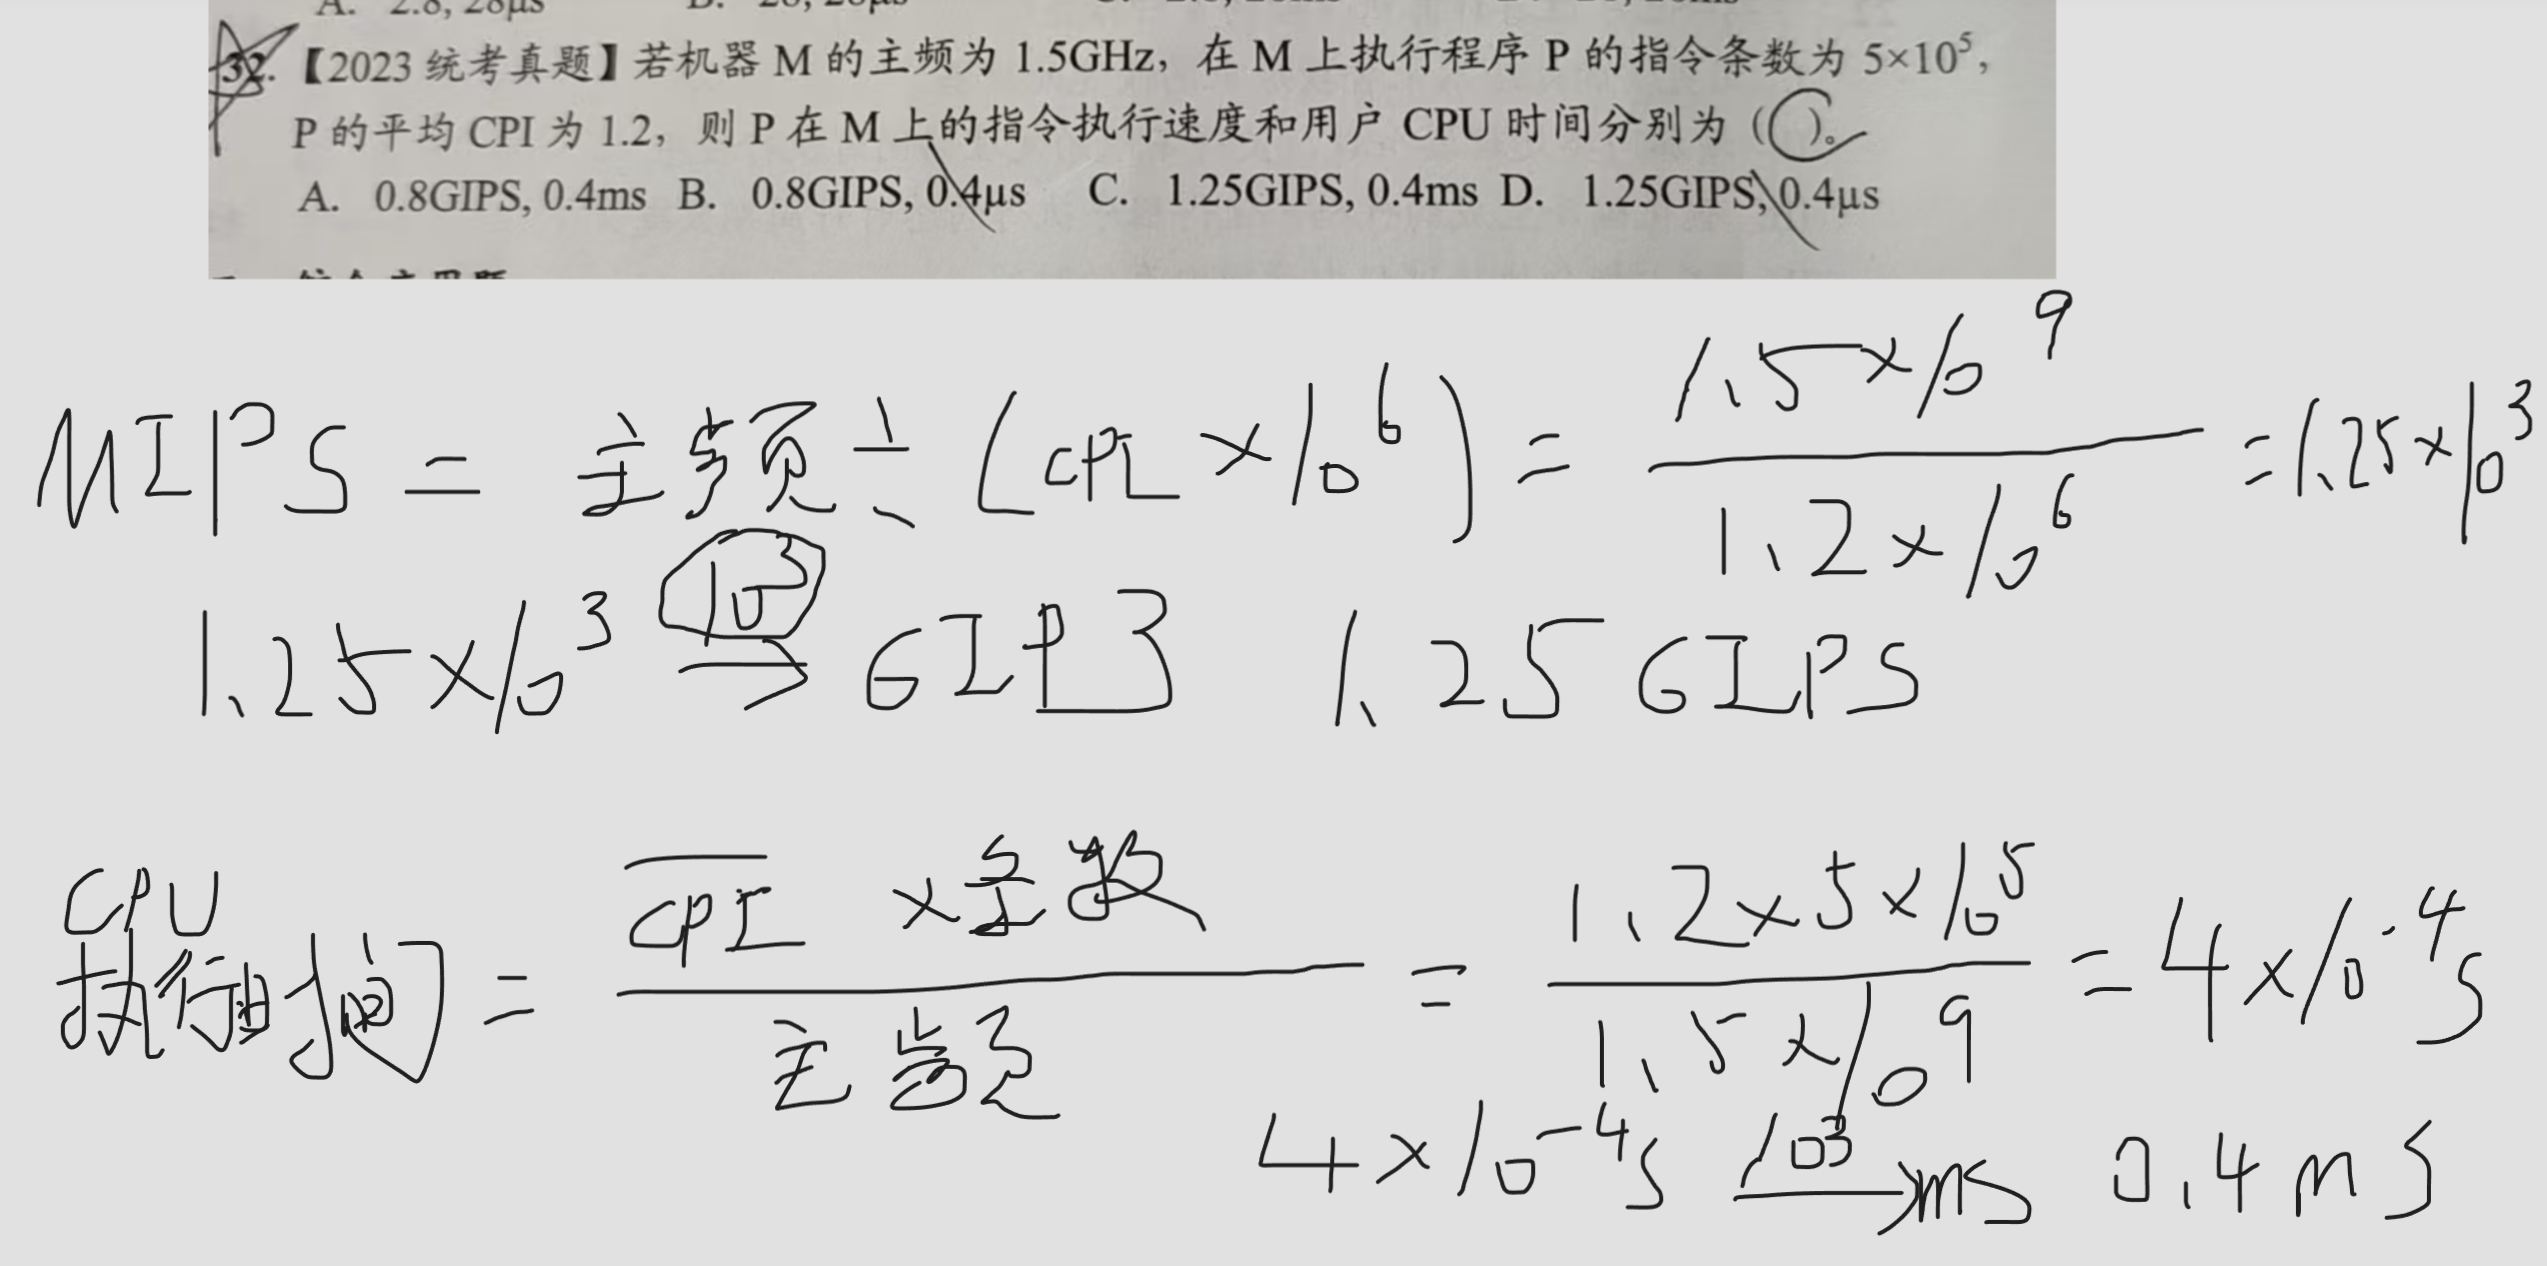 32. 【2023 统考真题】若机器 M 的主频为 1.5GHz，在 M 上执行程序 P 的指令条数为 5×10⁵，
P 的平均 CPI 为 1.2，则 P 在 M 上的指令执行速度和用户 CPU 时间分别为（ ）。
A. 0.8GIPS, 0.4ms B. 0.8GIPS, 0.4μs C. 1.25GIPS, 0.4ms D. 1.25GIPS, 0.4μs
MIPS = 主频 ÷ (CPI × 10⁶) = 1.5×10⁹ / 1.2×10⁶ = 1.25×10³
1.25×10³ 10³ → GIPS 1.25 GIPS
CPU
执行时间 = CPI × 条数 / 主频 = 1.2×5×10⁵ / 1.5×10⁹ = 4×10⁻⁴s
4×10⁻⁴s 10³ → ms 0.4ms